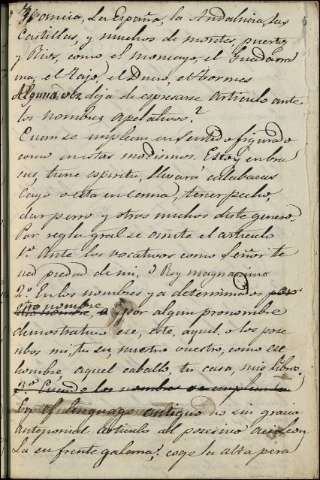 La España, la Andalucia, las
Castillas, y muchos de montes, puertos
y Rios, como el moncayo, el Guadarra
ma, el Tajo, el Duero, el Tormes
Alguna vez deja de espresarse articulo ante
los nombres apelativos?
Cuando se emplean en sentido figurado
como en estos modismos. Estoy en bra
sas, tiene espiritu, llevará calabazas
Cayó o está en cama, tener pecho,
dar perro y otros muchos de este genero.
Por regla gral se omite el articulo
1º Ante los vocativos como Señor te
ned piedad de mi, o Rey magnanimo
2º En los nombres ya determinados por
otro nombre por algun pronombre
demostrativo ese, este, aquel, o los pose
sibos mi, tu su, nuestro vuestro, como ese
hombre, aquel caballo, tu casa, mis libros,
3º Cuando los nombres se emplean
En el lenguage antiguo no sin gracia
anteponian articulo al posesivo
La su frente galana! coge la alta pera